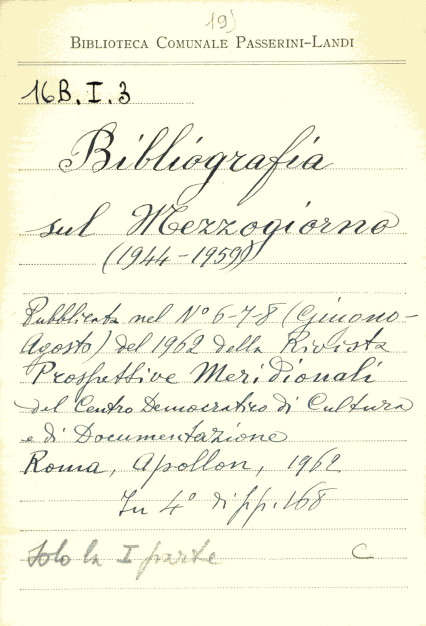 19)
BIBLIOTECA COMUNALE PASSERINI-LANDI
16B.I.3
Bibliografia
sul Mezzogiorno
(1944-1959)
Pubblicata nel N° 6-7-8 (Giugno-
Agosto) del 1962 della Rivista
Prospettive Meridionali
del Centro Democratico di Cultura
e di Documentazione
Roma, Apollon, 1962
In 4° di pp. 168
Solo la I parte
C